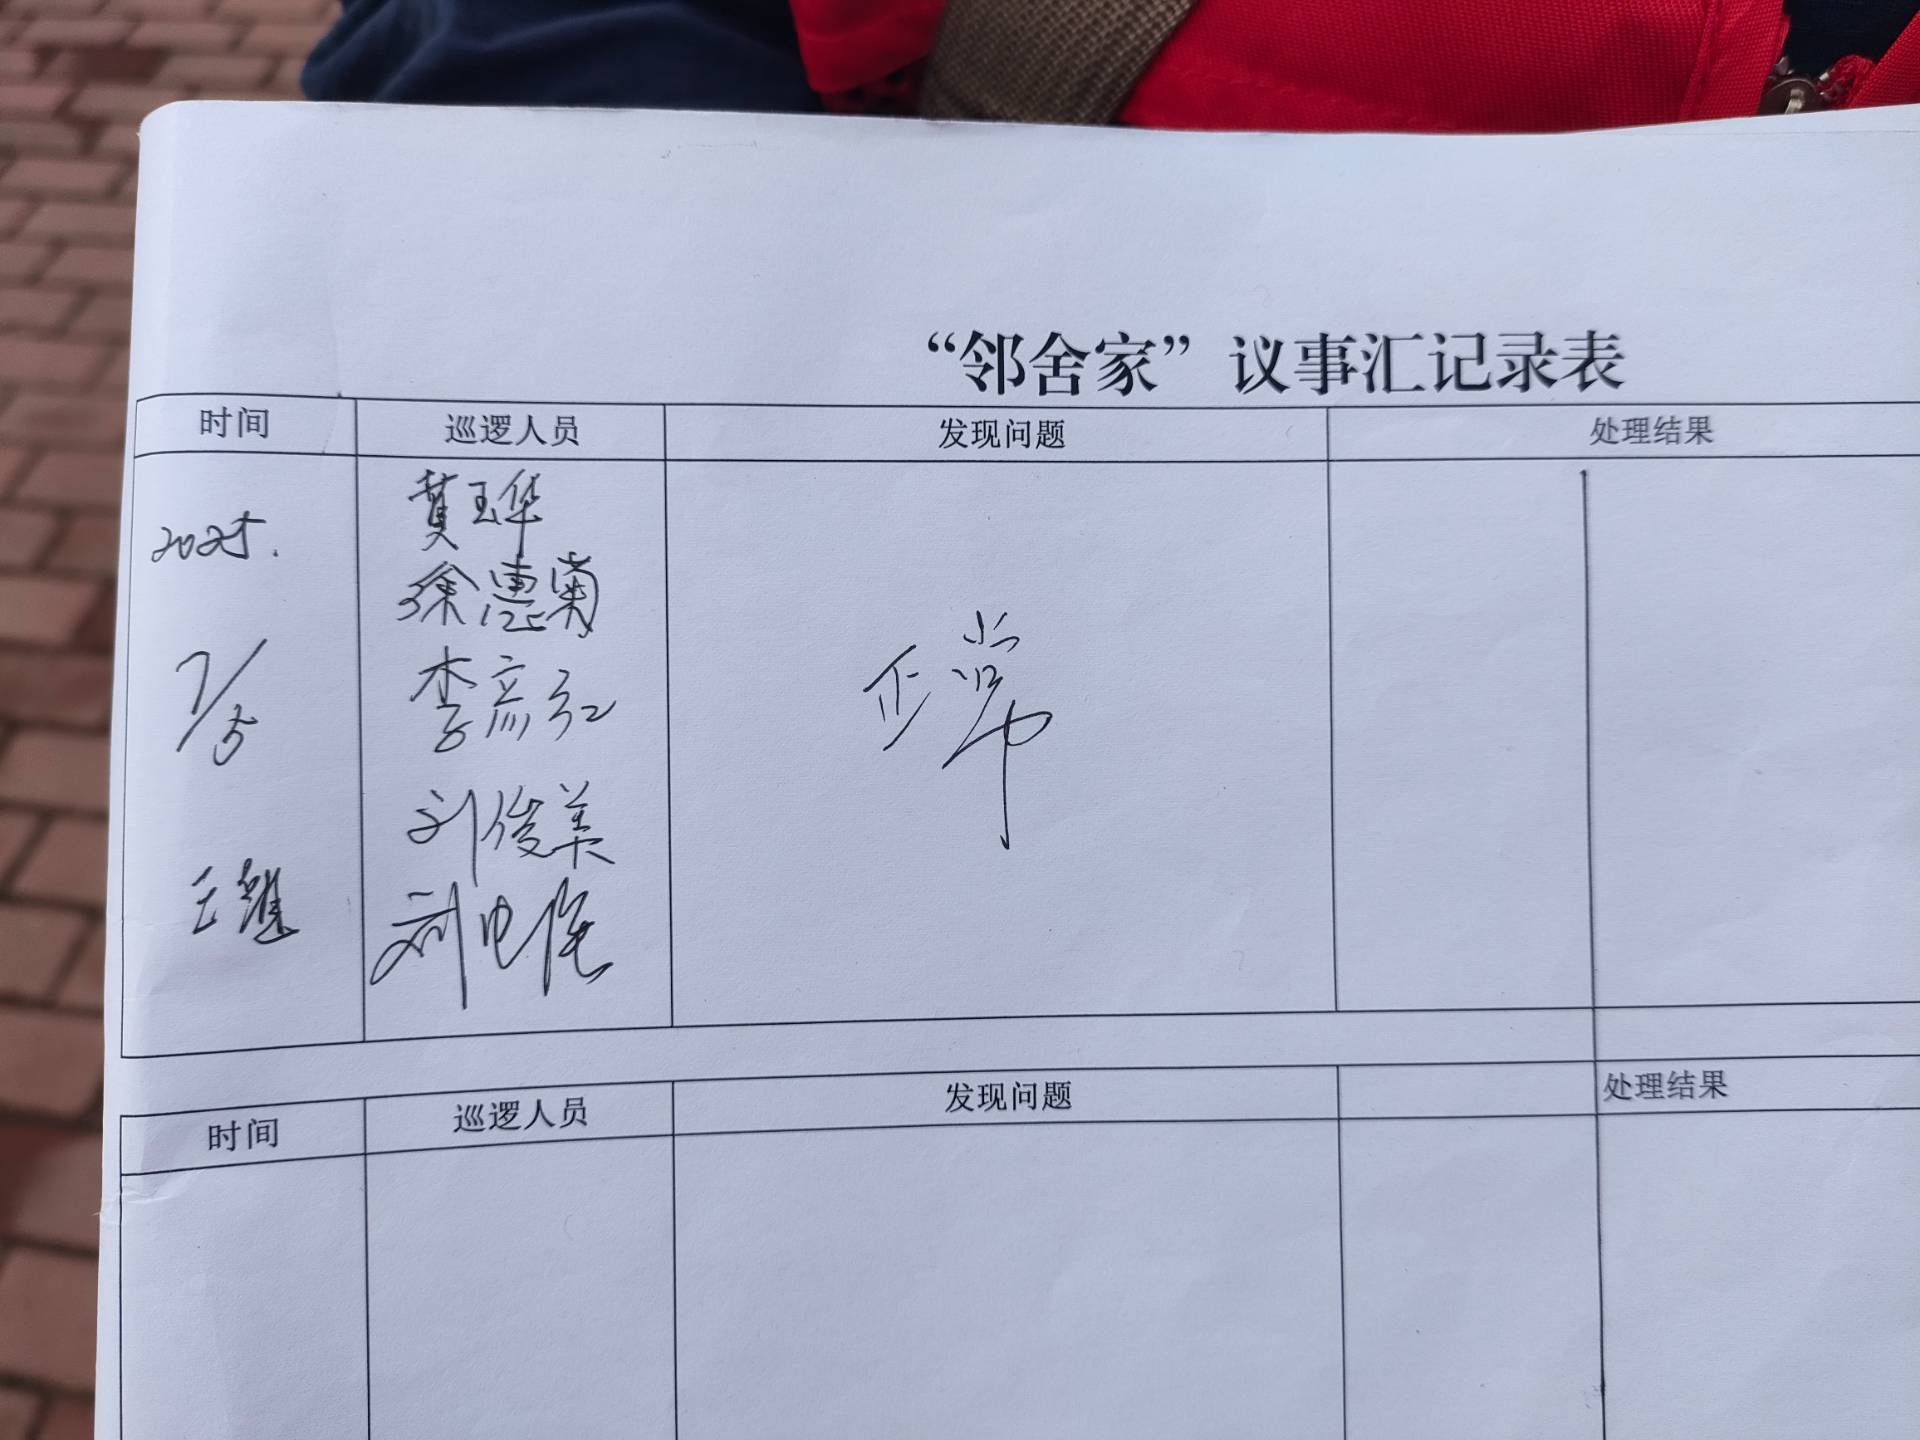 “邻舍家”议事汇记录表
时间 巡逻人员 发现问题 处理结果
2025.
7/5
王
黄玉华
徐惠菊
李彦红
刘俊美
刘
正常
时间 巡逻人员 发现问题 处理结果